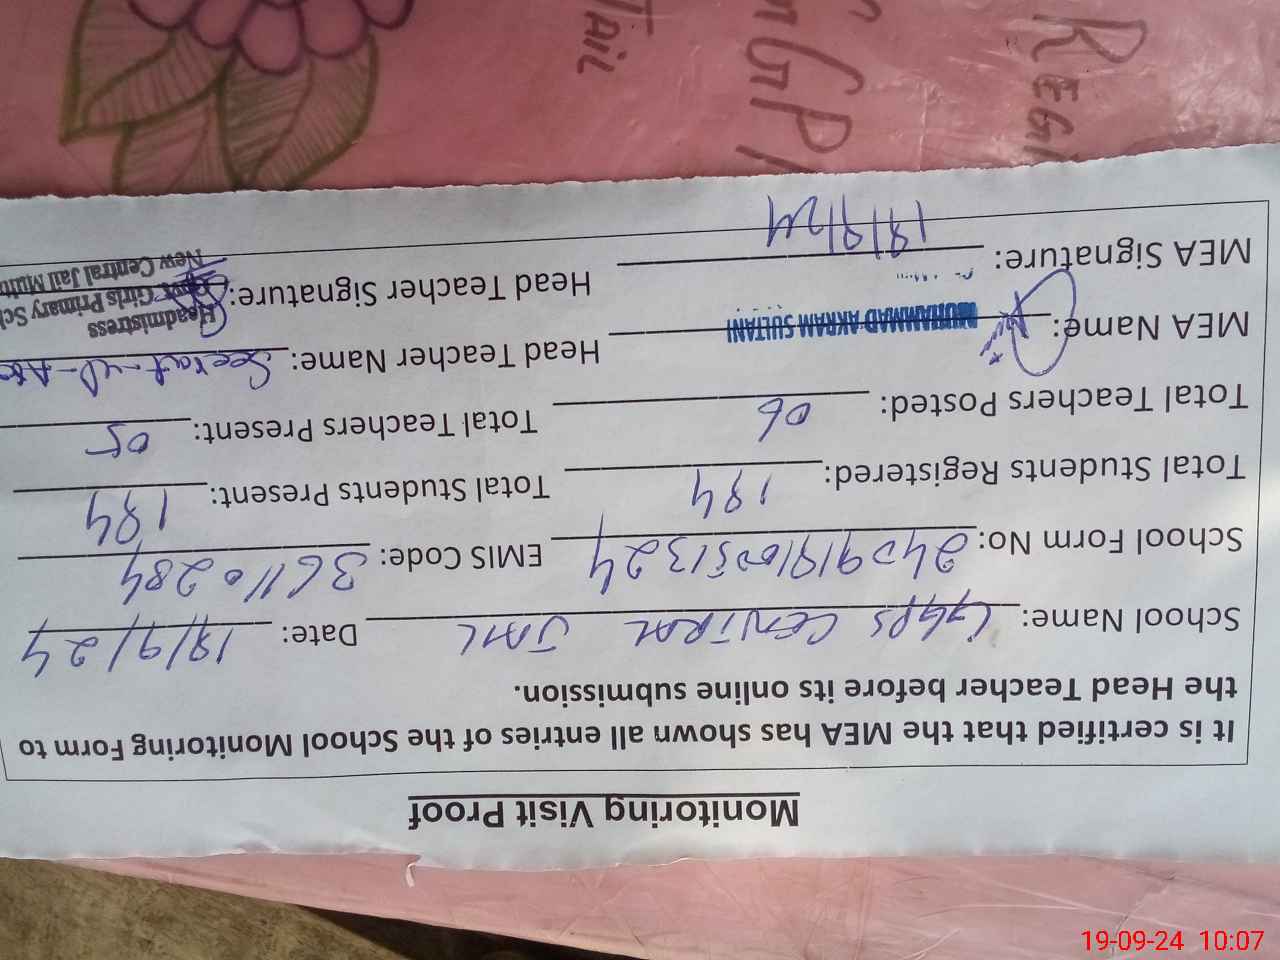 Monitoring Visit Proof
It is certified that the MEA has shown all entries of the School Monitoring Form to
the Head Teacher before its online submission.
School Name: GGPS CENTRAL JAIL Date: 19/9/24
School Form No: EMIS Code: 36110284
Total Students Registered: 194 Total Students Present: 194
Total Teachers Posted: 06 Total Teachers Present: 05
MEA Name: MUHAMMAD AKRAM SULTANI Head Teacher Name:
MEA Signature: 19/9/24 Head Teacher Signature:
Headmistress
Govt. Girls Primary
New Central Jail
JAIL
19-09-24 10:07